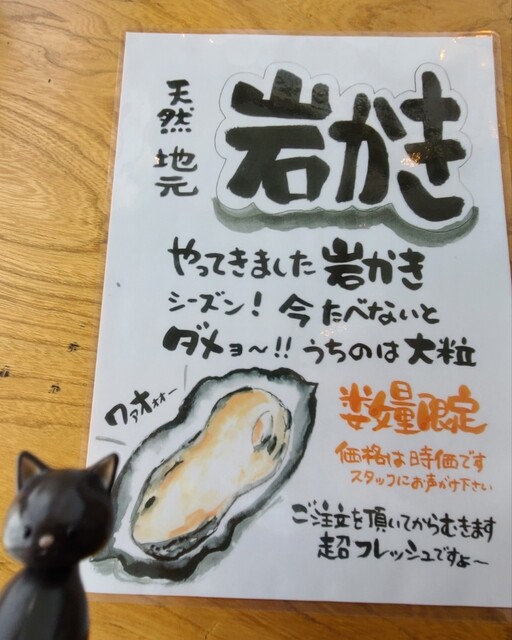 天然 地元
岩かき
やってきました岩かき
シーズン！今たべないと
ダメョ〜!! うちのは大粒
ワァオォォー
数量限定
価格は時価です
スタッフにお声がけ下さい
ご注文を頂いてからむきます
超フレッシュですよ〜